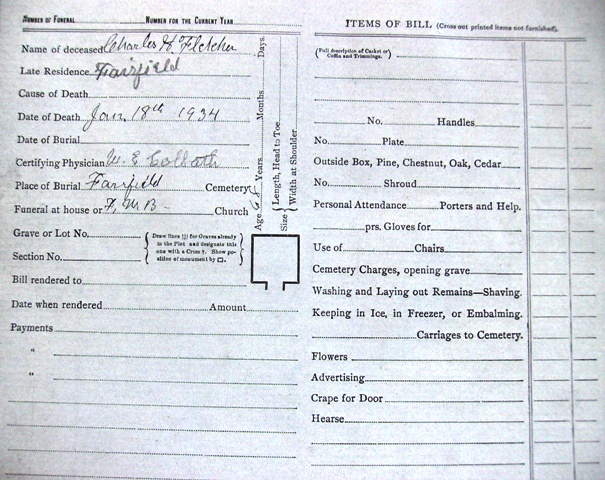 Number of Funeral Number for the Current Year
Name of deceased Charles H Fletcher
Late Residence Fairfield
Cause of Death
Date of Death Jan. 18th 1934
Date of Burial
Certifying Physician W. E.
Place of Burial Fairfield Cemetery
Funeral at house or F. M B Church
Grave or Lot No.
Section No.
Draw lines ||| for Graves already in the Plot and designate this one with a Cross †. Show position of monument by □.
Bill rendered to
Date when rendered Amount
Payments
"
"
Age 68 Years Months Days.
Size Length, Head to Toe
Width at Shoulder
ITEMS OF BILL (Cross out printed items not furnished).
(Full description of Casket or Coffin and Trimmings.)
No. Handles
No. Plate
Outside Box, Pine, Chestnut, Oak, Cedar
No. Shroud
Personal Attendance Porters and Help.
prs. Gloves for
Use of Chairs
Cemetery Charges, opening grave
Washing and Laying out Remains—Shaving.
Keeping in Ice, in Freezer, or Embalming.
Carriages to Cemetery.
Flowers
Advertising
Crape for Door
Hearse